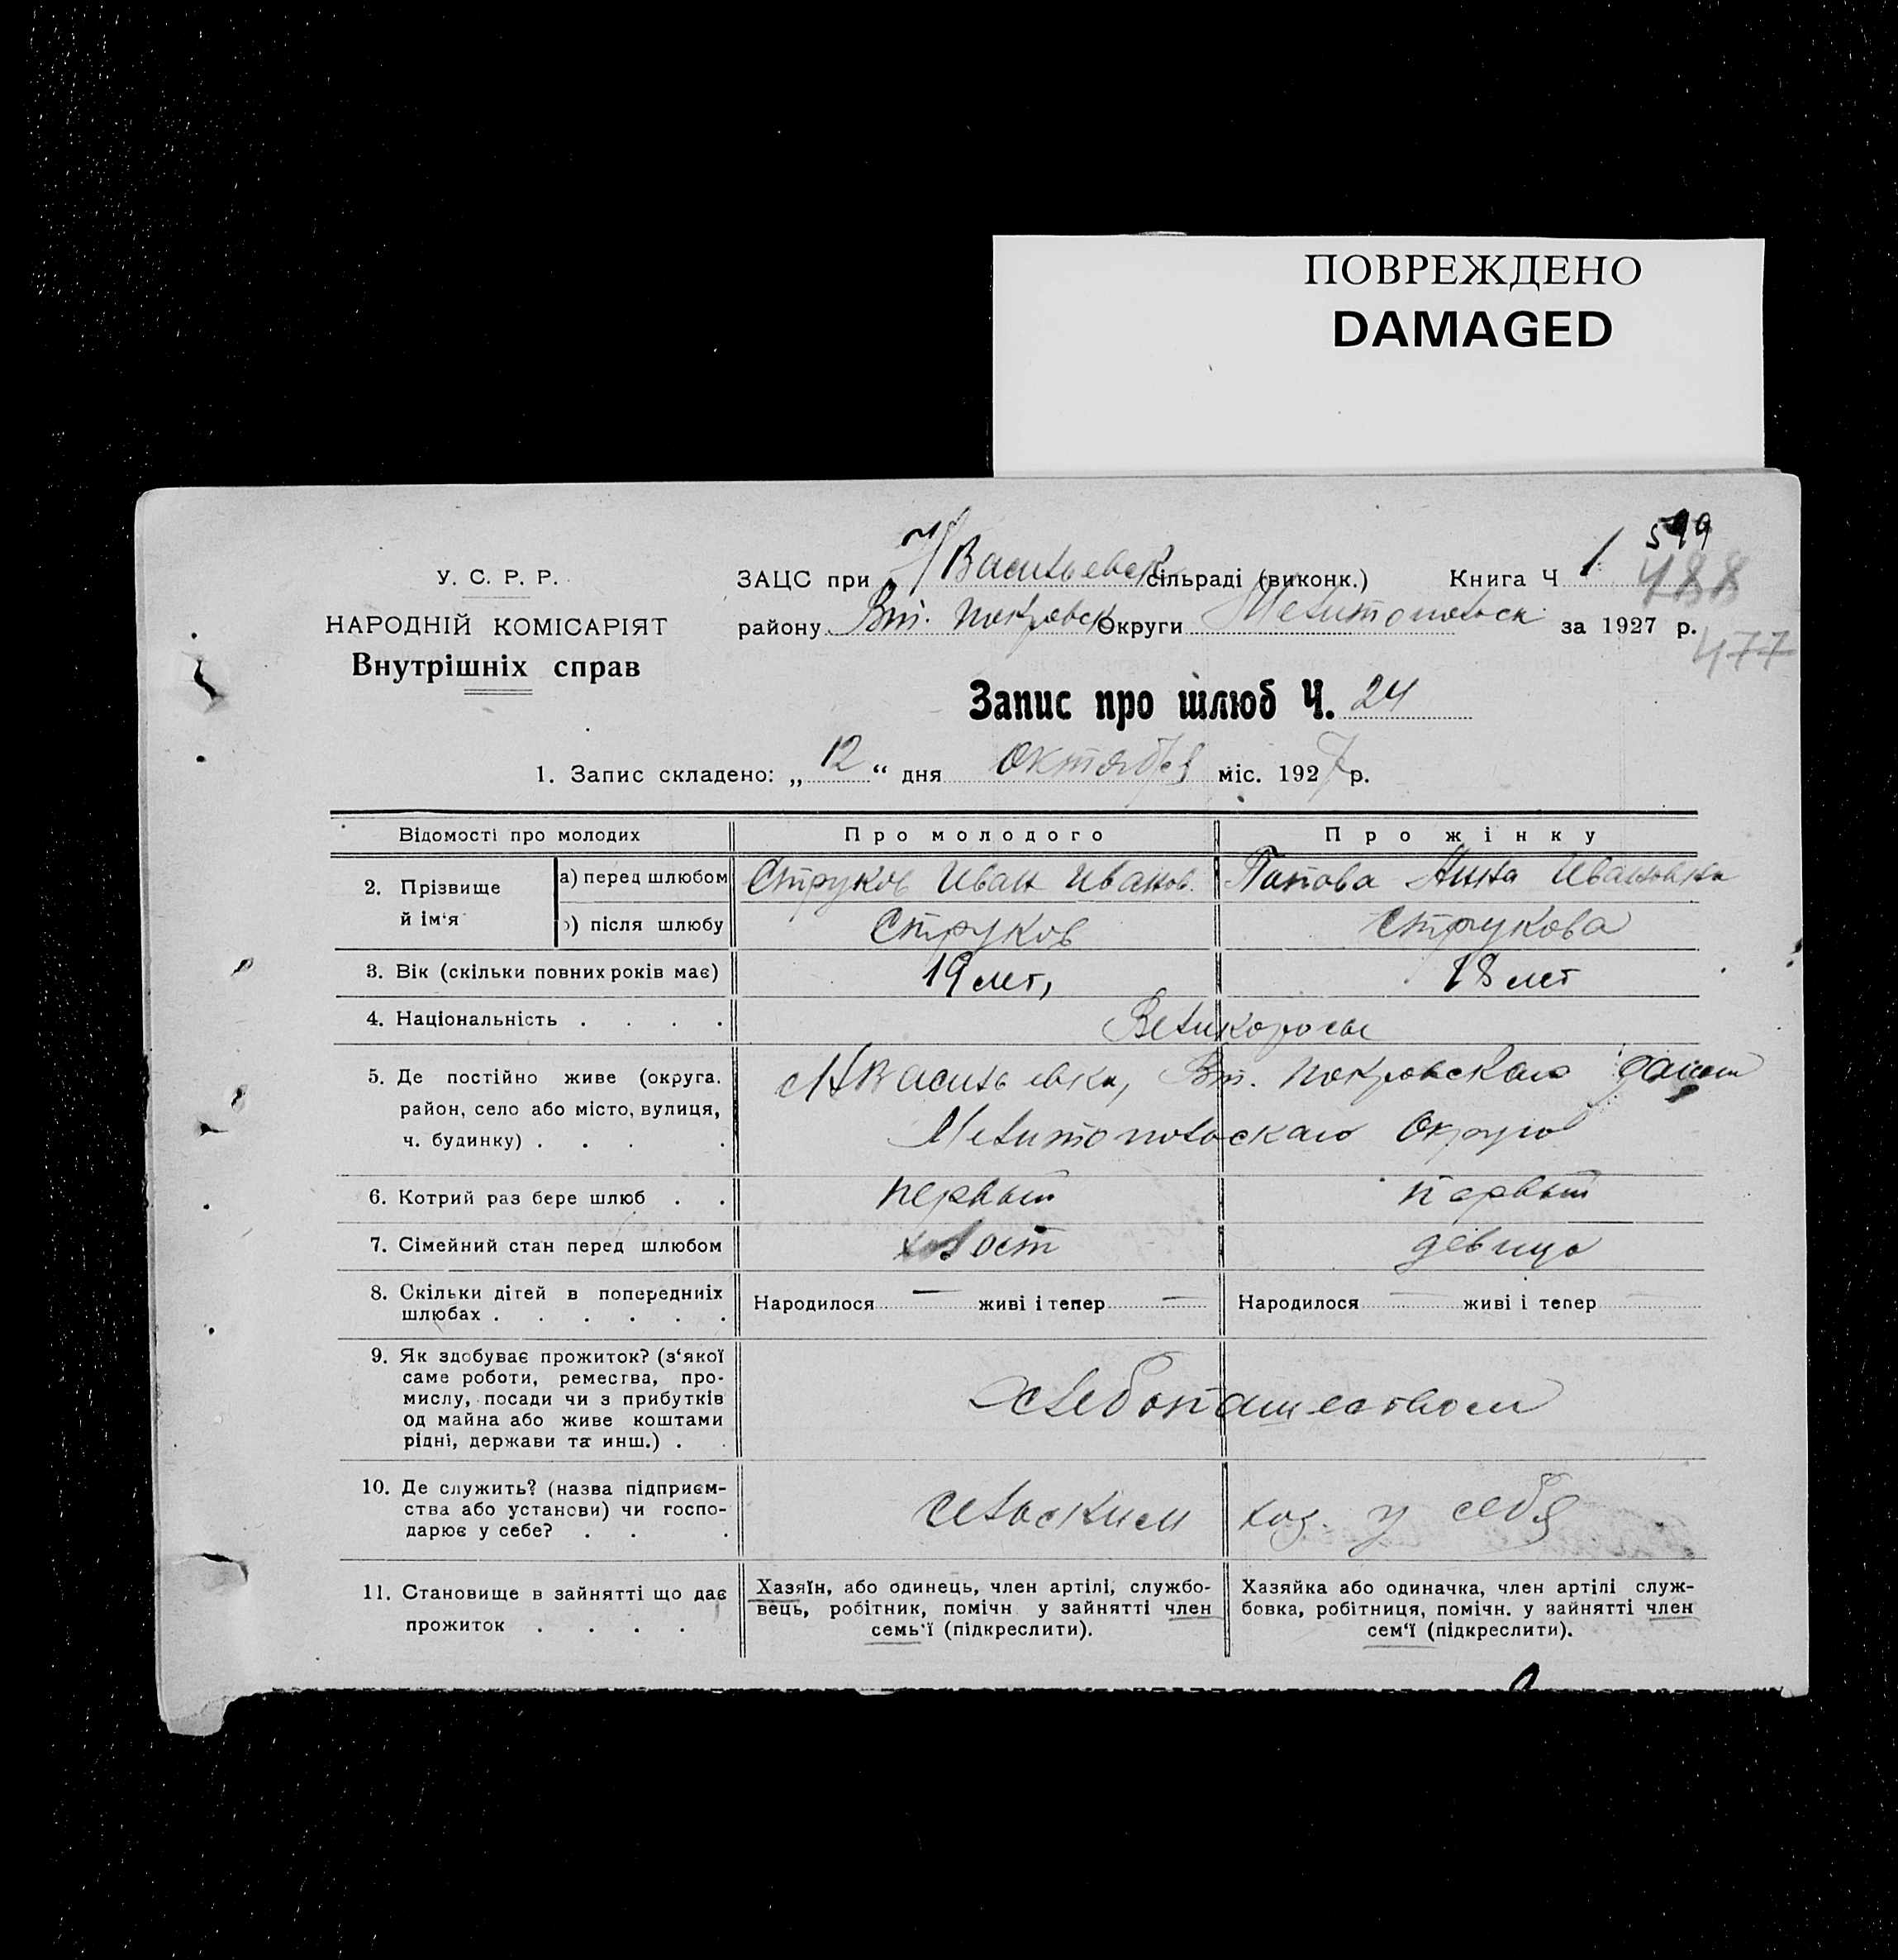 ПОВРЕЖДЕНО
DAMAGED
У. С. Р. Р.
НАРОДНІЙ КОМІСАРІЯТ
Внутрішніх справ
ЗАЦС при Н/Васильевск сільраді (виконк.) Книга Ч 1
488
району Вт. Покровск Округи Мелитопольск за 1927 р.
477
Запис про шлюб Ч. 24
1. Запис складено: „12“ дня Октября міс. 1927 р.
Відомості про молодих Про молодого Про жінку
2. Прізвище й ім‘я
а) перед шлюбом Струков Иван Иванов. Попова Анна Ивановна
б) після шлюбу Струков Струкова
3. Вік (скільки повних років має) 19 лет, 18 лет
4. Національність . . . . Великоросы
5. Де постійно живе (округа.
район, село або місто, вулиця,
ч. будинку) . . . .
Н Васильевка, Вт. Покровскаго
Мелитопольскаго Округа
6. Котрий раз бере шлюб . . первый первый
7. Сімейний стан перед шлюбом холост девица
8. Скільки дітей в попередниіх
шлюбах . . . . . .
Народилося — живі і тепер — Народилося — живі і тепер —
9. Як здобуває прожиток? (з‘якої
саме роботи, ремества, про-
мислу, посади чи з прибутків
од майна або живе коштами
рідні, держави та инш.) . .
Хлебопашеством
10. Де служить? (назва підприєм-
ства або установи) чи госпо-
дарює у себе? . . .
сельским хоз. у себя
11. Становище в зайнятті що дає
прожиток . . . .
Хазяїн, або одинець, член артілі, службо-
вець, робітник, помічн у зайнятті член
семь‘ї (підкреслити).
Хазяйка або одиначка, член артілі служ-
бовка, робітниця, помічн. у зайнятті член
сем‘ї (підкреслити).